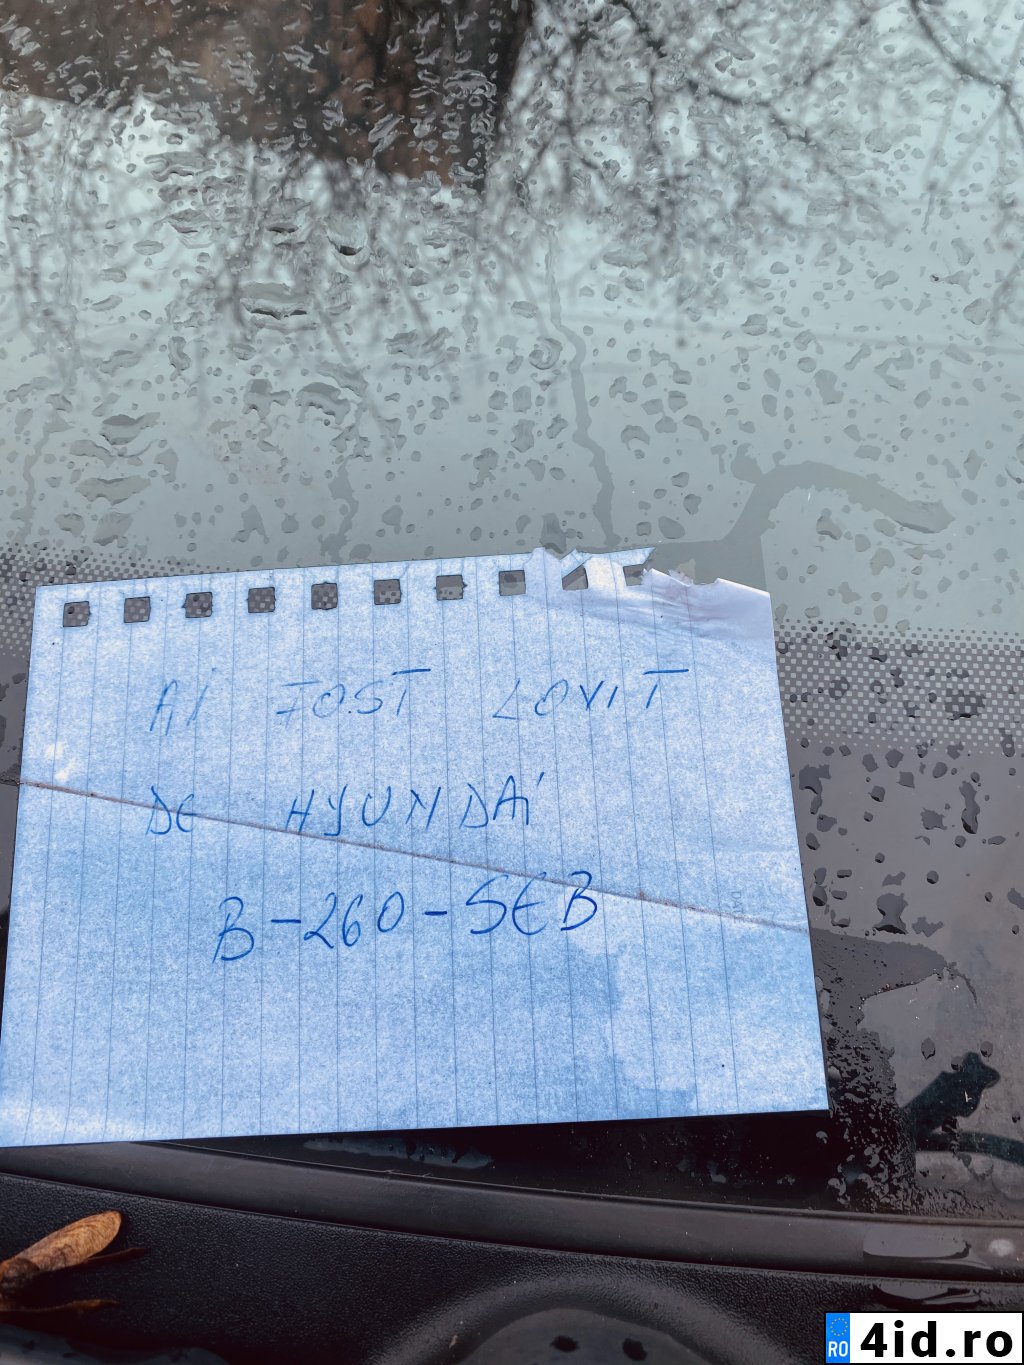 Ai FOST LOVIT
DE HYUNDAi
B-260-SEB
RO 4id.ro